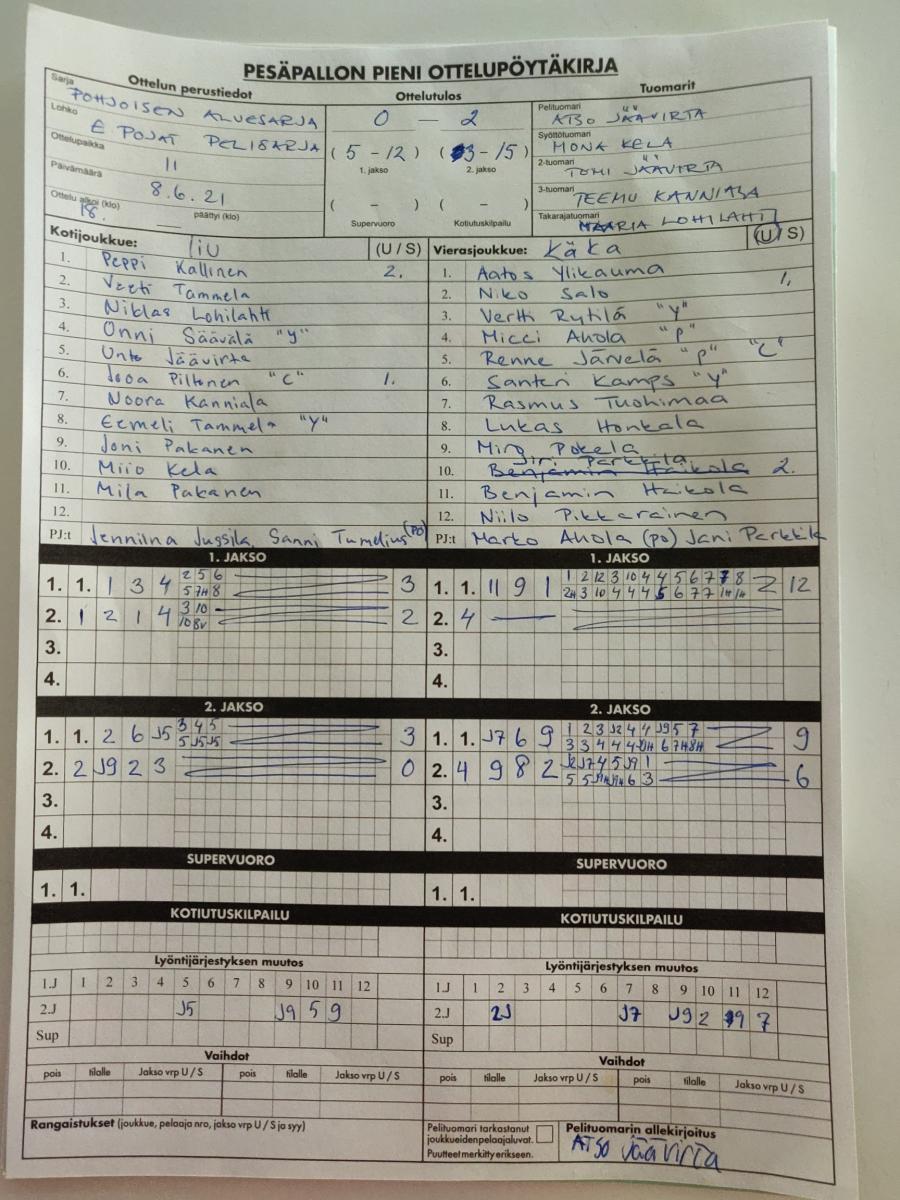 PESÄPALLON PIENI OTTELUPÖYTÄKIRJA
Ottelun perustiedot
Sarja POHJOISEN ALUESARJA
Lohko E POJAT PELISARJA
Ottelupaikka II
Päivämäärä 8.6.21
Ottelu alkoi (klo) 18. päättyi (klo) —
Ottelutulos
0 — 2
(5 - 12) (3 - 15)
1. jakso 2. jakso
( - ) ( - )
Supervuoro Kotiutuskilpailu
Tuomarit
Pelituomari ATSO JÄÄVIRTA
Syöttötuomari MONA KELA
2-tuomari TOMI JÄÄVIRTA
3-tuomari TEEMU KANNIALA
Takarajatuomari MAARIA LOHILAHTI
Kotijoukkue: IiU (U / S)
1. Peppi Kallinen 2.
2. Veeti Tammela
3. Niklas Lohilahti
4. Onni Säävälä "Y"
5. Unto Jäävirta
6. Jooa Piltonen "C" 1.
7. Noora Kanniala
8. Eemeli Tammela "Y"
9. Joni Pakanen
10. Miio Kela
11. Mila Pakanen
12.
PJ:t Jenniina Jussila, Sanni Tumelius (PO)
Vierasjoukkue: KäKa (U / S)
1. Aatos Ylikauma 1.
2. Niko Salo
3. Vertti Rytilä "Y"
4. Micci Ahola "P"
5. Renne Järvelä "P" "C"
6. Santeri Kamps "Y"
7. Rasmus Tuohimaa
8. Lukas Honkala
9. Miro Pokela
10. Jiri Parkkila 2.
Benjamin Haikola
11. Benjamin Haikola
12. Niilo Pikkarainen
PJ:t Marko Ahola (po) Jani Parkkila
1. JAKSO
1. 1. 1 3 4 2 5 6 3
5 7H 8
2. 1 2 1 4 3 10 2
10 8V
3.
4.
1. JAKSO
1. 1. 11 9 1 1 2 12 3 10 4 4 5 6 7 7 8 12
2H 3 10 4 4 4 5 6 7 7 1H 1H
2. 4 —
3.
4.
2. JAKSO
1. 1. 2 6 J5 3 4 5 3
5 J5 J5
2. 2 J9 2 3 0
3.
4.
2. JAKSO
1. 1. J7 6 9 1 2 3 J2 4 4 J9 5 7 9
3 3 4 4 4 6 7H 8H
2. 4 9 8 2 J2 J7 4 5 J9 1 6
5 5 6 3
3.
4.
SUPERVUORO
1. 1.
SUPERVUORO
1. 1.
KOTIUTUSKILPAILU
KOTIUTUSKILPAILU
Lyöntijärjestyksen muutos
1.J 1 2 3 4 5 6 7 8 9 10 11 12
2.J J5 J9 5 9
Sup
Lyöntijärjestyksen muutos
1.J 1 2 3 4 5 6 7 8 9 10 11 12
2.J 2J J7 J9 2 9 7
Sup
Vaihdot
pois tilalle Jakso vrp U / S pois tilalle Jakso vrp U / S
Vaihdot
pois tilalle Jakso vrp U / S pois tilalle Jakso vrp U / S
Rangaistukset (joukkue, pelaaja nro, jakso vrp U / S ja syy)
Pelituomari tarkastanut
joukkueiden pelaajaluvat.
Puutteet merkitty erikseen.
Pelituomarin allekirjoitus
ATSO Jäävirta